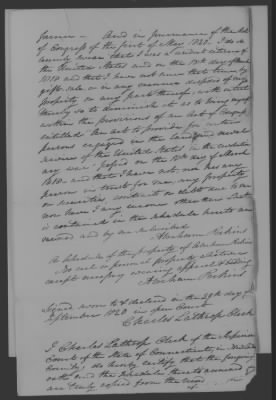 farmer — And in pursuance of the Act
of Congress of the first of May 1820. I do so
lemnly swear that I was a resident citizen of
the United States and on the 18th day of March
1818 and that I have not since that time by
gift, sale or in any manner disposed of my
property or any part thereof, with intent
thereby so to diminish it as to bring myself
within the provisions of an Act of Congress
entitled An act to provide for certain
persons engaged in the land and naval
service of the United States in the revolution
ary war, passed on the 18th day of March
1818 — and that I have not, nor has any
person in trust for me, any property
or securities, contracts or debts due to me
nor have I any income other than what
is contained in the schedule hereto an
nexed and by me subscribed
Abraham Perkins
A schedule of the property of Abraham Perkins
No real or personal property
except necessary wearing apparel & bedding
Abraham Perkins
Signed sworn to & declared on the day of
September 1820 in open Court
Charles Lathrop Clerk
I Charles Lathrop Clerk of the Superior
Court of the State of Connecticut in
County, do hereby certify that the foregoing
oath and the schedule thereto annexed
are truly copied from the